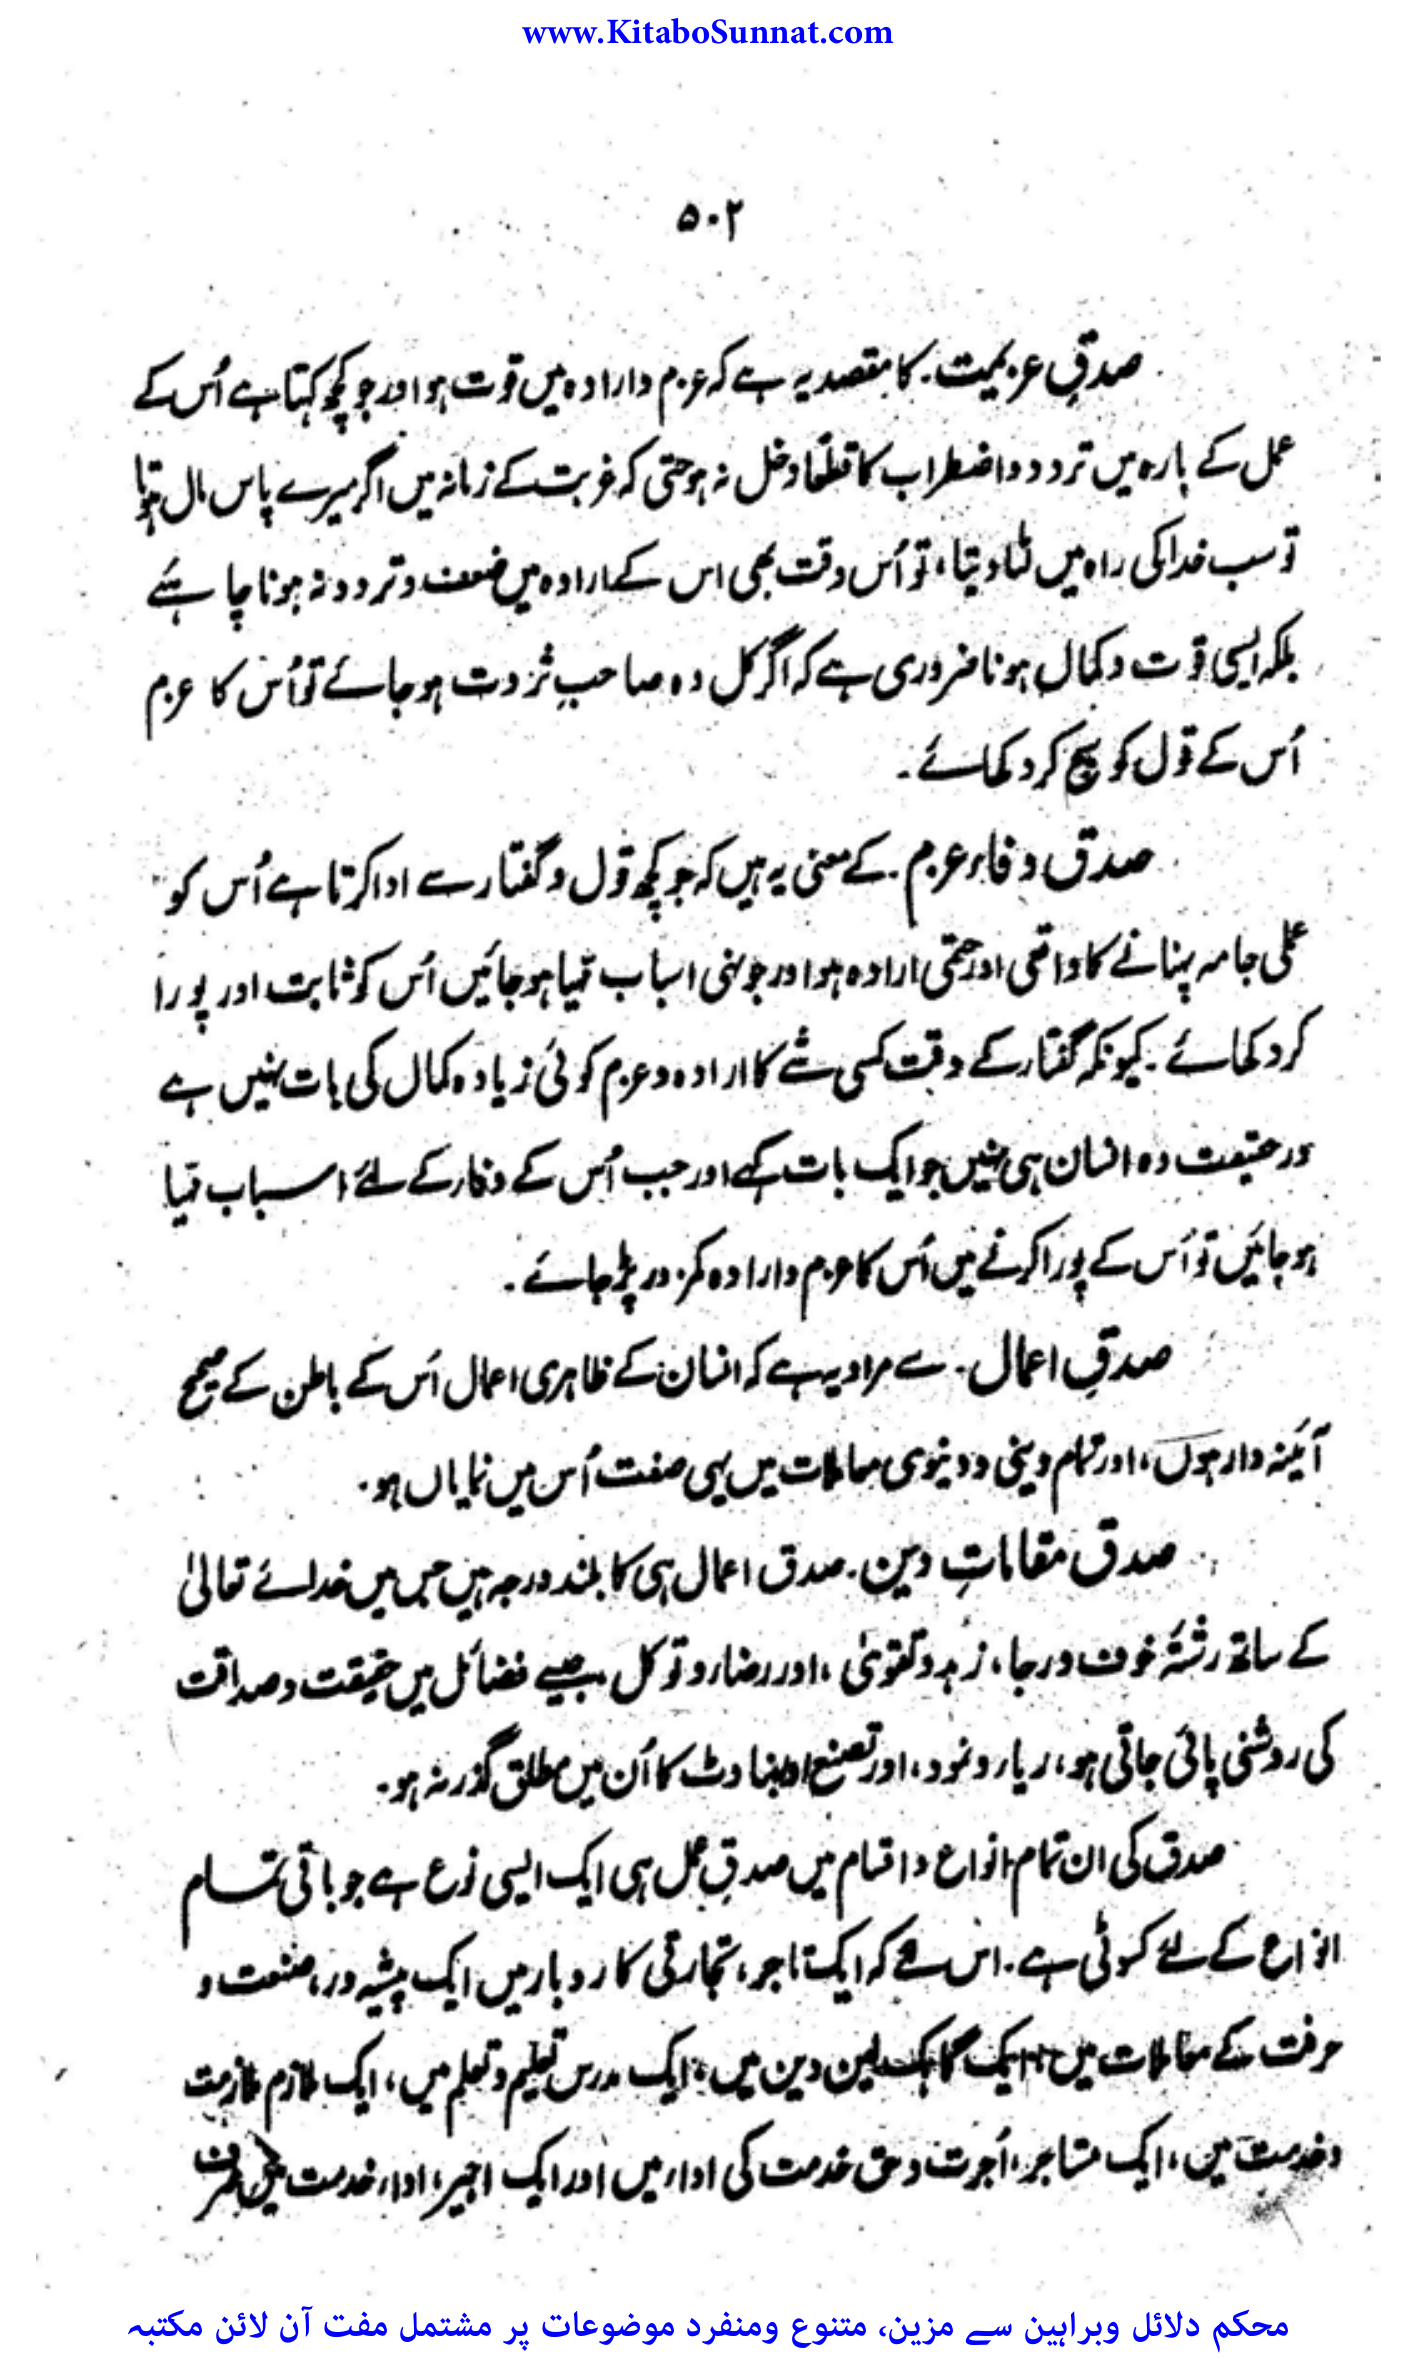 www.KitaboSunnat.com
۵۰۲
صدقِ عزیمت۔ کا مقصد یہ ہے کہ عزم و ارادہ میں قوت ہو اور جو کچھ کہتا ہے اُس کے
عمل کے بارہ میں تردد و اضطراب کا قطعًا دخل نہ ہو حتی کہ غربت کے زمانہ میں اگر میرے پاس مال ہوتا
تو سب خدا کی راہ میں لٹا دیتا، تو اُس وقت بھی اس کے ارادہ میں ضعف و تردد نہ ہونا چاہئے
بلکہ ایسی قوت و کمال ہونا ضروری ہے کہ اگر کل وہ صاحبِ ثروت ہو جائے تو اُس کا عزم
اُس کے قول کو سچ کر دکھائے۔
صدق وفاء عزم۔ کے معنی یہ ہیں کہ جو کچھ قول و گفتار سے ادا کرتا ہے اُس کو
عملی جامہ پہنانے کا واقعی اور حتمی ارادہ ہو اور جونہی اسباب مہیا ہو جائیں اُس کو ثابت اور پورا
کر دکھائے۔ کیونکہ گفتار کے وقت کسی شے کا ارادہ و عزم کوئی زیادہ کمال کی بات نہیں ہے
درحقیقت وہ انسان ہی نہیں جو ایک بات کہے اور جب اُس کے وفاء کے لئے اسباب مہیا
ہو جائیں تو اُس کے پورا کرنے میں اُس کا عزم و ارادہ کمزور پڑ جائے۔
صدقِ اعمال۔ سے مراد یہ ہے کہ انسان کے ظاہری اعمال اُس کے باطن کے صحیح
آئینہ دار ہوں، اور تمام دینی و دنیوی معاملات میں یہی صفت اُس میں نمایاں ہو۔
صدق مقاماتِ دین۔ صدق اعمال ہی کا بلند درجہ ہیں جس میں خدائے تعالیٰ
کے ساتھ رشتۂ خوف و رجا، زہد و تقویٰ، اور رضاء و توکل جیسے فضائل میں حقیقت و صداقت
کی روشنی پائی جاتی ہو، ریاء و نمود، اور تصنع اور بناوٹ کا اُن میں مطلق گذر نہ ہو۔
صدق کی ان تمام انواع و اقسام میں صدقِ عمل ہی ایک ایسی نوع ہے جو باقی تمام
انواع کے لئے کسوٹی ہے۔ اس لئے کہ ایک تاجر، تجارتی کاروبار میں ایک پیشہ ور، صنعت و
حرفت کے معاملات میں، ایک گاہک لین دین میں، ایک مدرس تعلیم و تعلم میں، ایک ملازم ملازمت
و خدمت میں، ایک مستاجر، اُجرت و حق خدمت کی اداء میں اور ایک اجیر، اداء خدمت میں صرف
محکم دلائل وبراہین سے مزین، متنوع ومنفرد موضوعات پر مشتمل مفت آن لائن مکتبہ